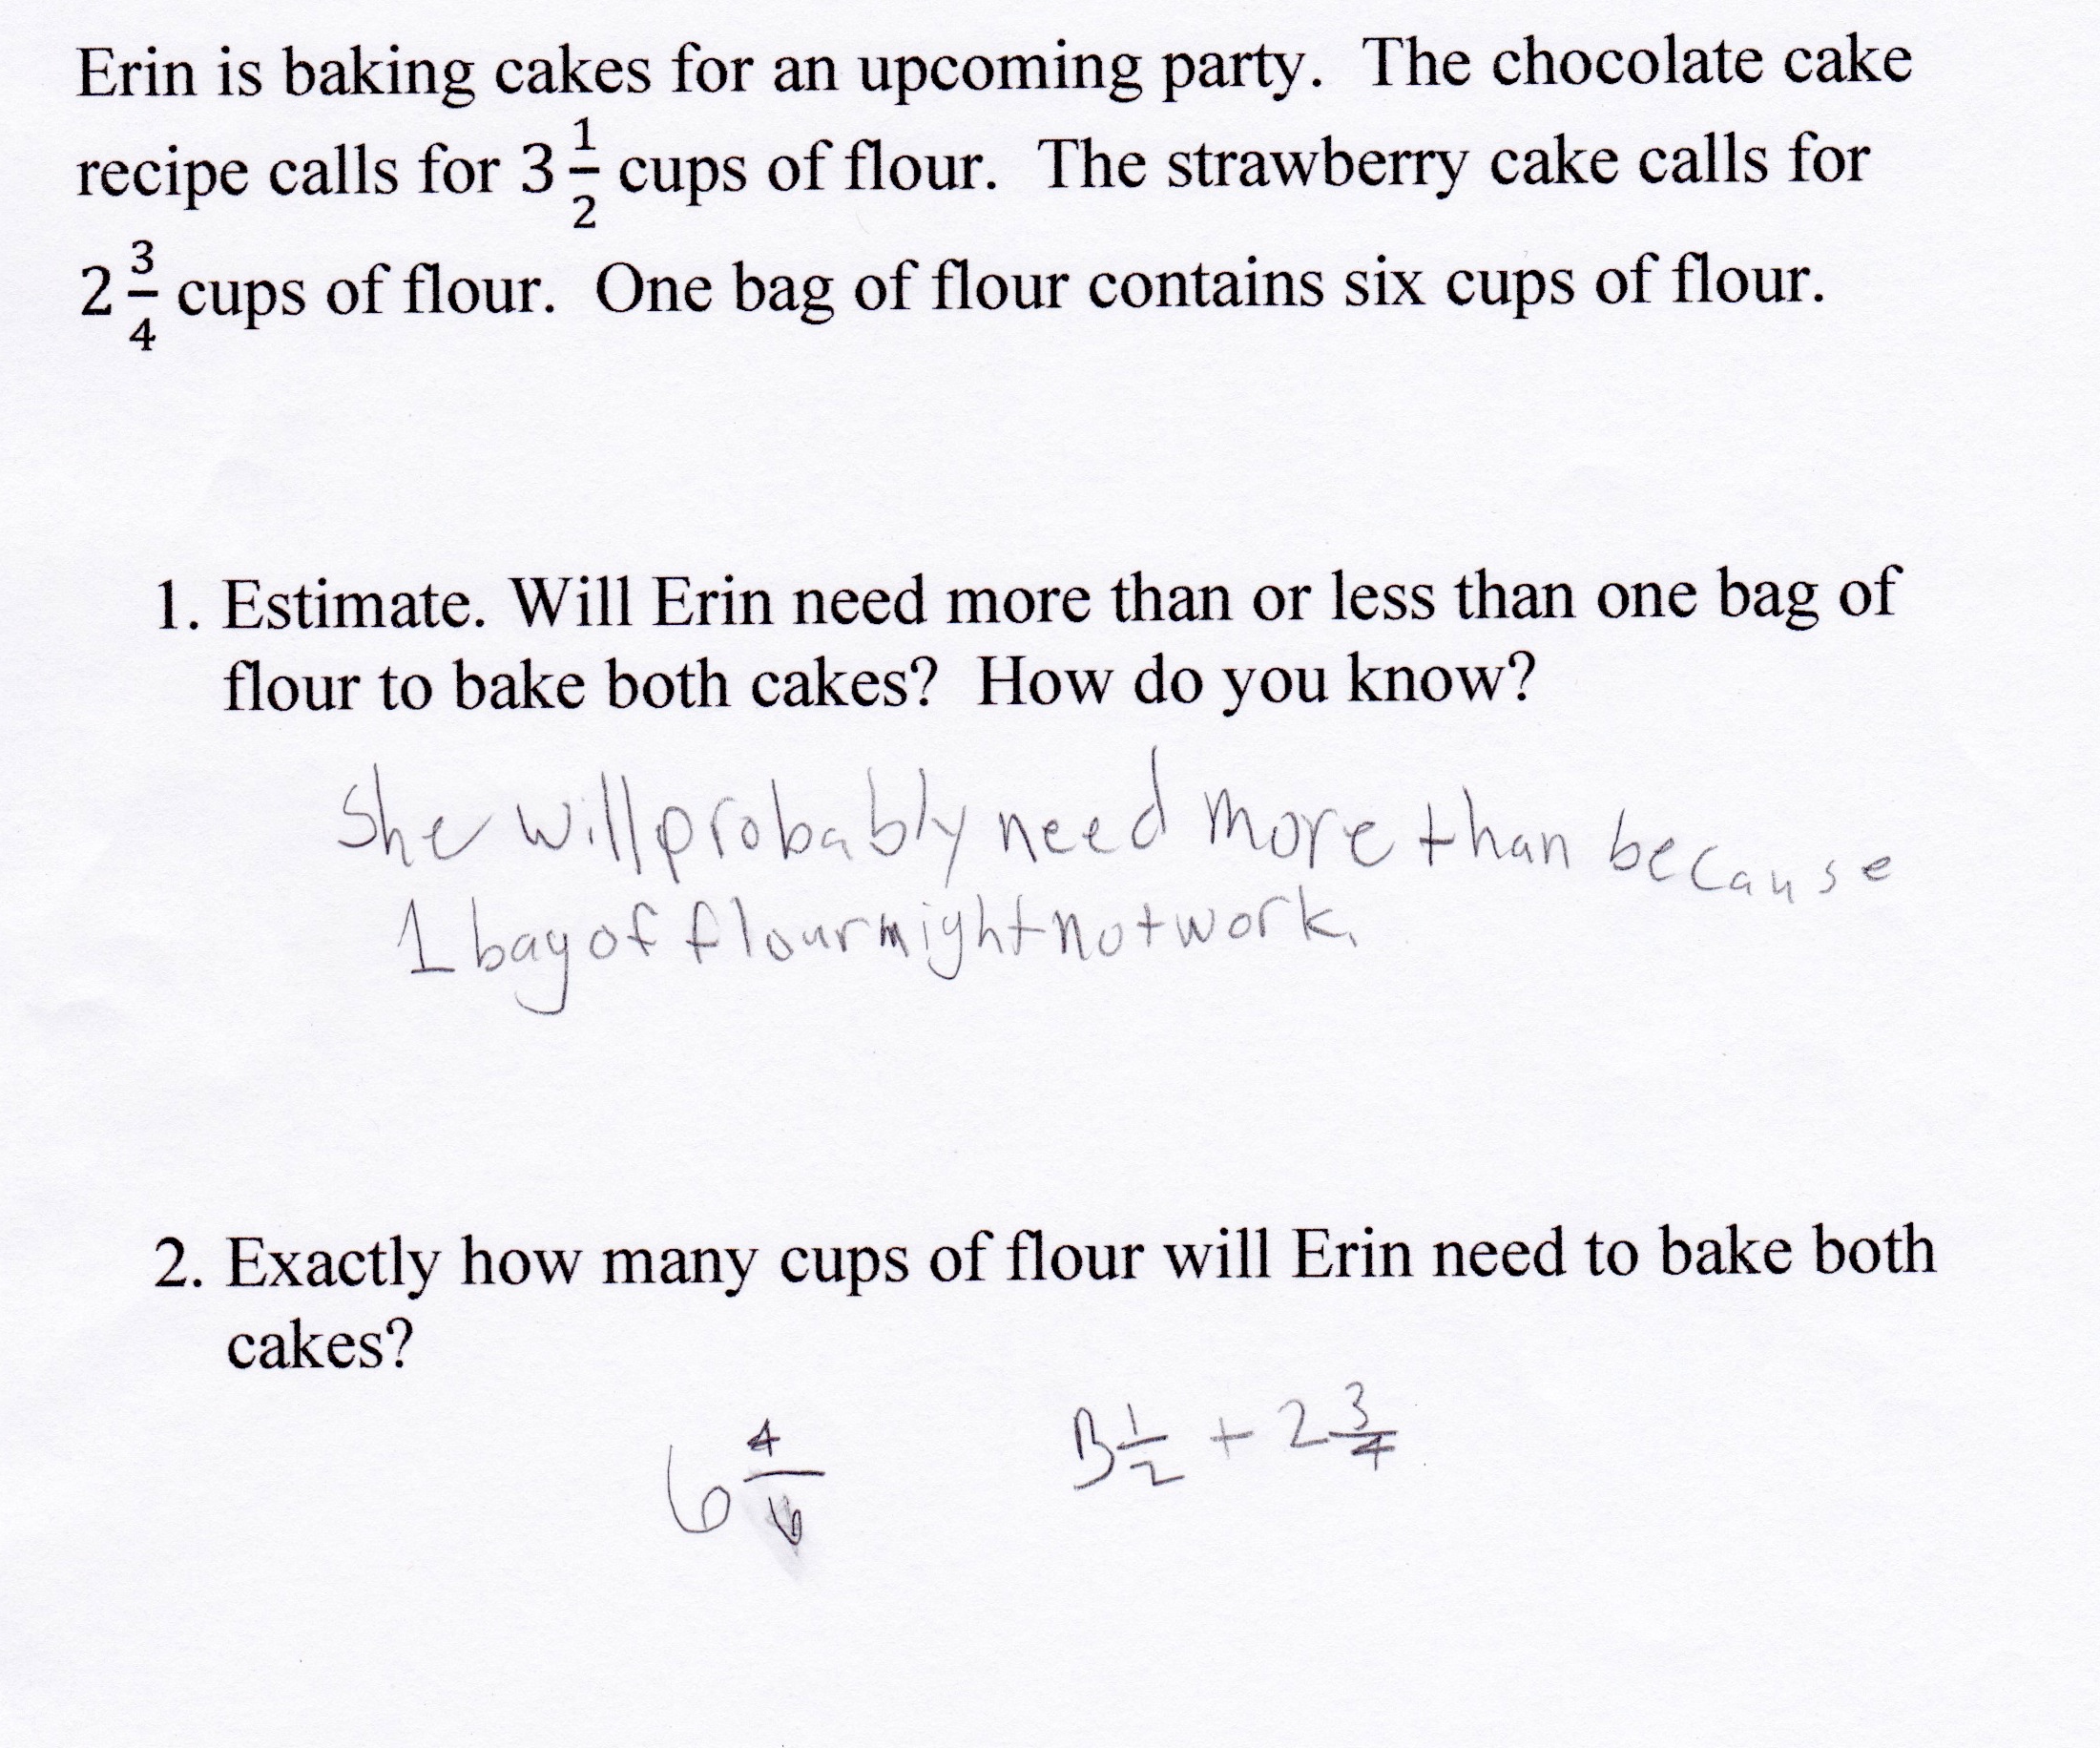 Erin is baking cakes for an upcoming party. The chocolate cake
recipe calls for 3 1/2 cups of flour. The strawberry cake calls for
2 3/4 cups of flour. One bag of flour contains six cups of flour.
1. Estimate. Will Erin need more than or less than one bag of
flour to bake both cakes? How do you know?
She will probably need more than because
1 bag of flour might not work.
2. Exactly how many cups of flour will Erin need to bake both
cakes?
6 4/6 3 1/2 + 2 3/4